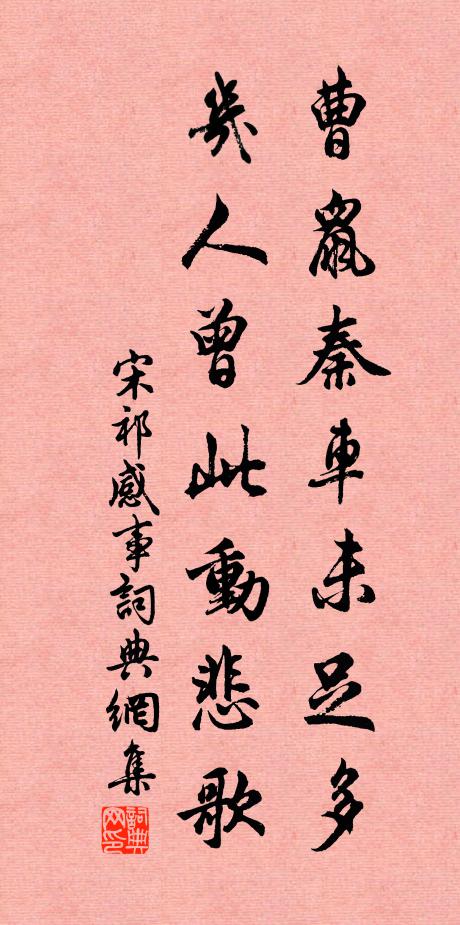 曹鼠秦車未足多
幾人曾此動悲歌
宋祁感事詞典網集
詞典
网印